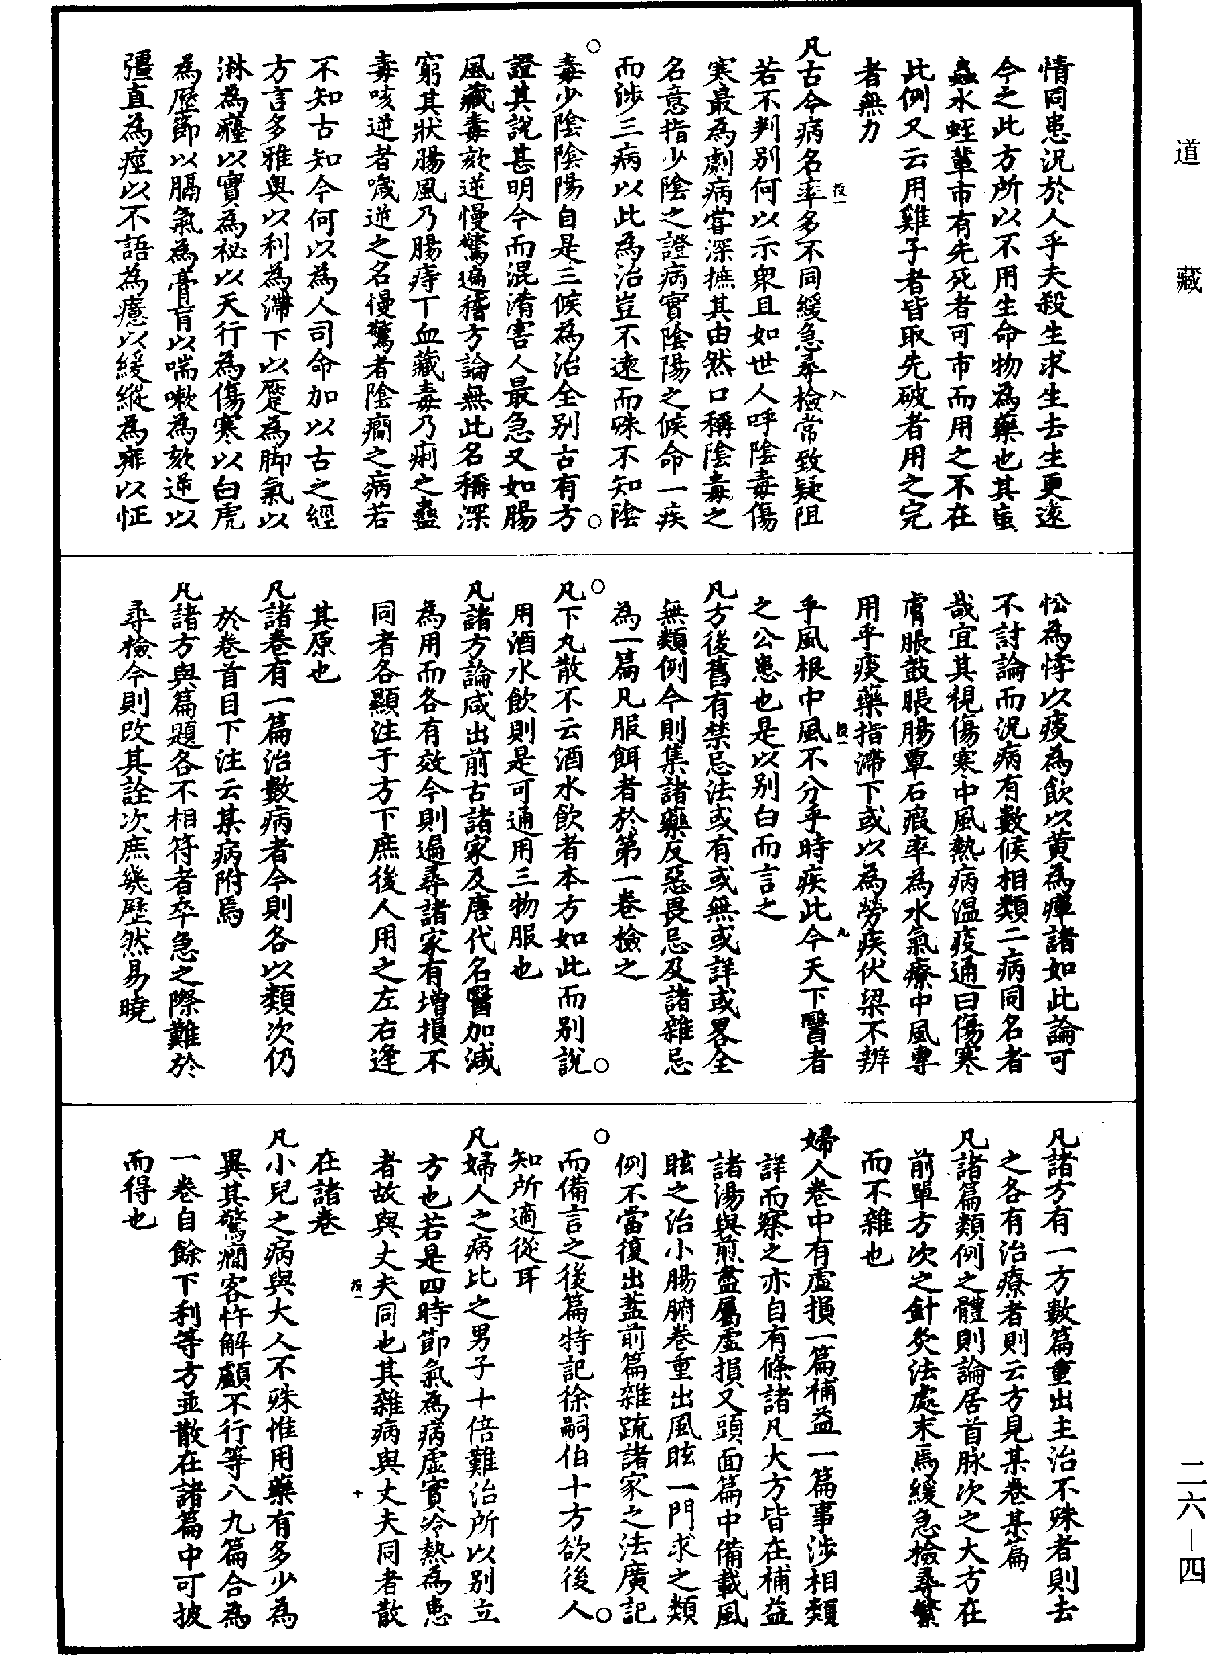 道藏
情同患況於人乎夫殺生求生去生更遠
今之此方所以不用生命物為藥也其䖟
蟲水蛭輩市有先死者可市而用之不在
此例又云用雞子者皆取先破者用之完
者無力
凡古今病名率多不同緩急尋檢常致疑阻
若不判別何以示衆且如世人呼陰毒傷
寒最為劇病嘗深摭其由然口稱陰毒之
名意指少陰之證病實陰陽之候命一疾
而涉三病以此為治豈不遠而殊不知陰
毒少陰陰陽自是三候為治全別古有方
證其說甚明今而混淆害人最急又如腸
風藏毒欬逆慢驚遍稽方論無此名稱深
窮其狀腸風乃腸痔下血藏毒乃痢之蠱
毒咳逆者噦逆之名慢驚者陰癎之病若
不知古知今何以為人司命加以古之經
方言多雅奥以利為滯下以蹷為脚氣以
淋為癃以實為祕以天行為傷寒以白虎
為歷節以膈氣為膏肓以喘嗽為欬逆以
彊直為痙以不語為癔以緩縱為痱以怔
忪為悸以痰為飲以黄為癉諸如此論可
不討論而況病有數候相類二病同名者
哉宜其視傷寒中風熱病温疫通曰傷寒
膚脹鼓脹腸覃石瘕率為水氣療中風專
用乎痰藥指滯下或以為勞疾伏梁不辨
乎風根中風不分乎時疾此今天下醫者
之公患也是以別白而言之
凡方後舊有禁忌法或有或無或詳或畧全
無類例今則集諸藥反惡畏忌及諸雜忌
為一篇凡服餌者於第一卷檢之
凡下丸散不云酒水飲者本方如此而別說
用酒水飲則是可通用三物服也
凡諸方論咸出前古諸家及唐代名醫加減
為用而各有效今則遍尋諸家有增損不
同者各顯注于方下庶後人用之左右逢
其原也
凡諸卷有一篇治數病者今則各以類次仍
於卷首目下注云某病附焉
凡諸方與篇題各不相符者卒急之際難於
尋檢今則改其詮次庶幾歷然易曉
凡諸方有一方數篇重出主治不殊者則去
之各有治療者則云方見某卷某篇
凡諸篇類例之體則論居首脉次之大方在
前單方次之針灸法處末焉緩急檢尋繁
而不雜也
婦人卷中有虛損一篇補益一篇事涉相類
詳而察之亦自有條諸凡大方皆在補益
諸湯與煎盡屬虛損又頭面篇中備載風
眩之治小腸腑卷重出風眩一門求之類
例不當復出蓋前篇雜疏諸家之法廣記
而備言之後篇特記徐嗣伯十方欲後人
知所適從耳
凡婦人之病比之男子十倍難治所以別立
方也若是四時節氣為病虛實冷熱為患
者故與丈夫同也其雜病與丈夫同者散
在諸卷
凡小兒之病與大人不殊惟用藥有多少為
異其驚癎客忤解顱不行等八九篇合為
一卷自餘下利等方並散在諸篇中可披
而得也
二六－四